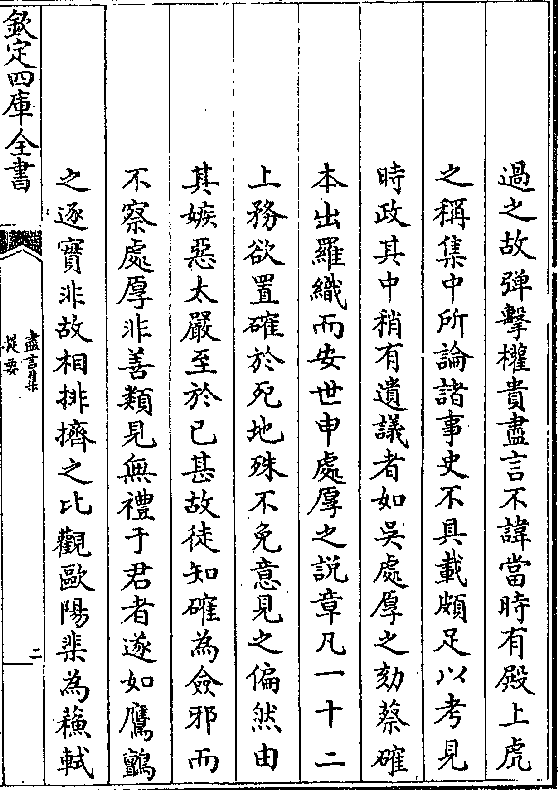 過之故弾擊權貴盡言不諱當時有殿上虎
之稱集中所論諸事史不具載頗足以考見
時政其中稍有遺議者如吳處厚之劾蔡確
本出羅織而安世申處厚之說章凡一十二
上務欲置確於死地殊不免意見之偏然由
其嫉惡太嚴至於已甚故徒知確為僉邪而
不察處厚非善類見無禮于君者遂如鷹鸇
之逐實非故相排擠之比觀歐陽棐為蘓軾
欽定四庫全書
盡言集
提要
二